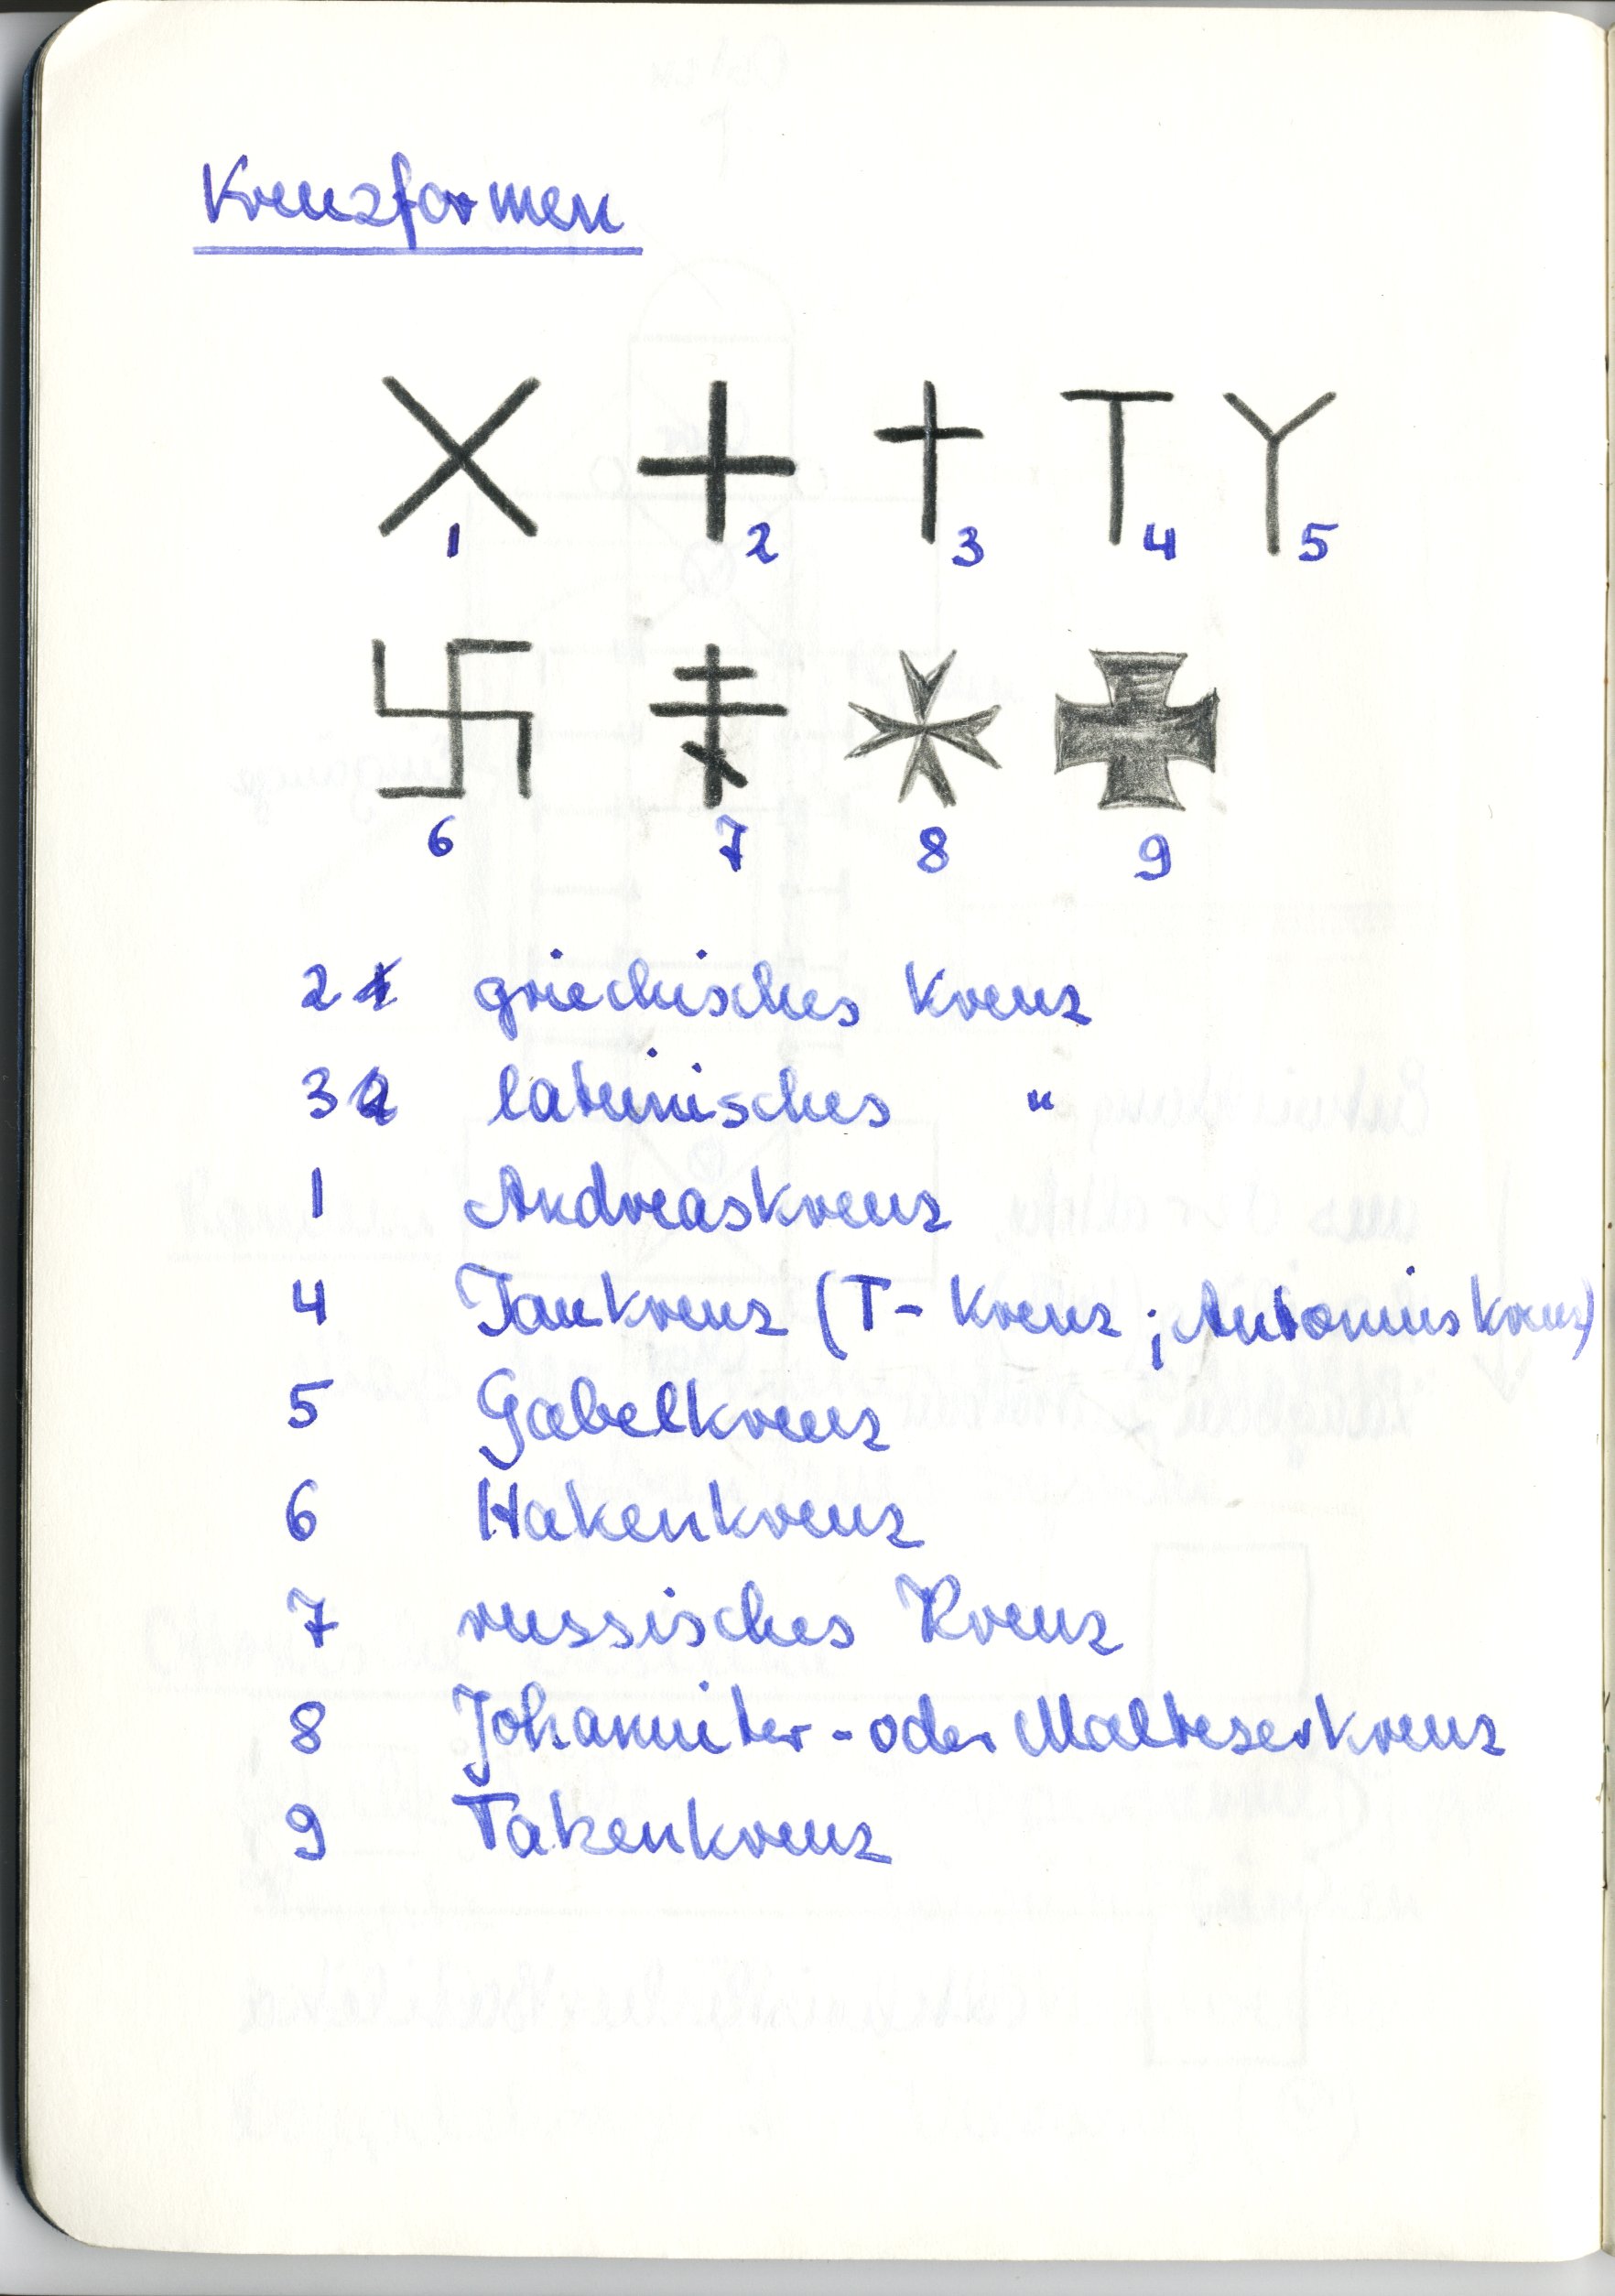 Kreuzformen
1 2 3 4 5
6 7 8 9
2 1 griechisches Kreuz
3 2 lateinisches "
1 Andreaskreuz
4 Taukreuz (T-Kreuz; Antoniuskreuz)
5 Gabelkreuz
6 Hakenkreuz
7 russisches Kreuz
8 Johanniter- oder Malteserkreuz
9 Tatzenkreuz